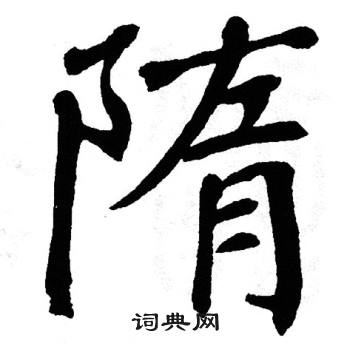 隋
词典网